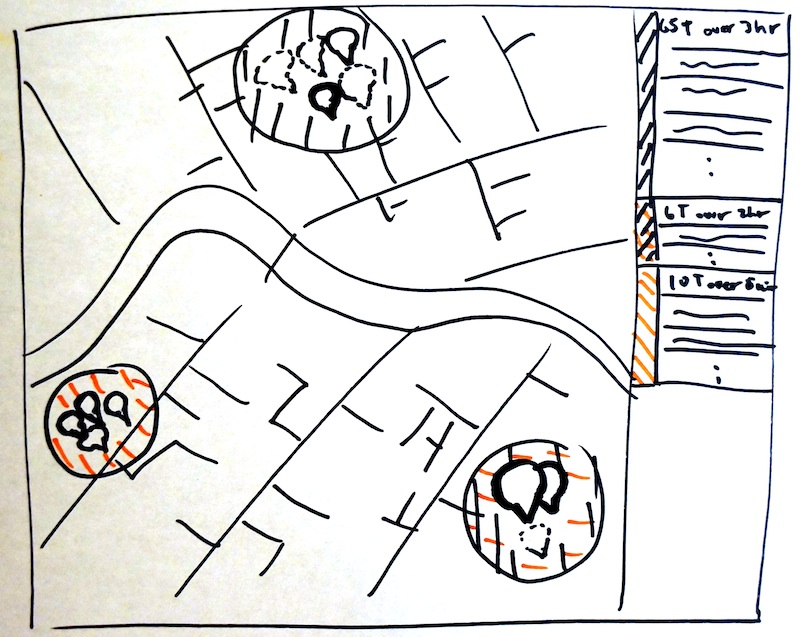 65T over 3hr
6T over 2hr
10T over 5min